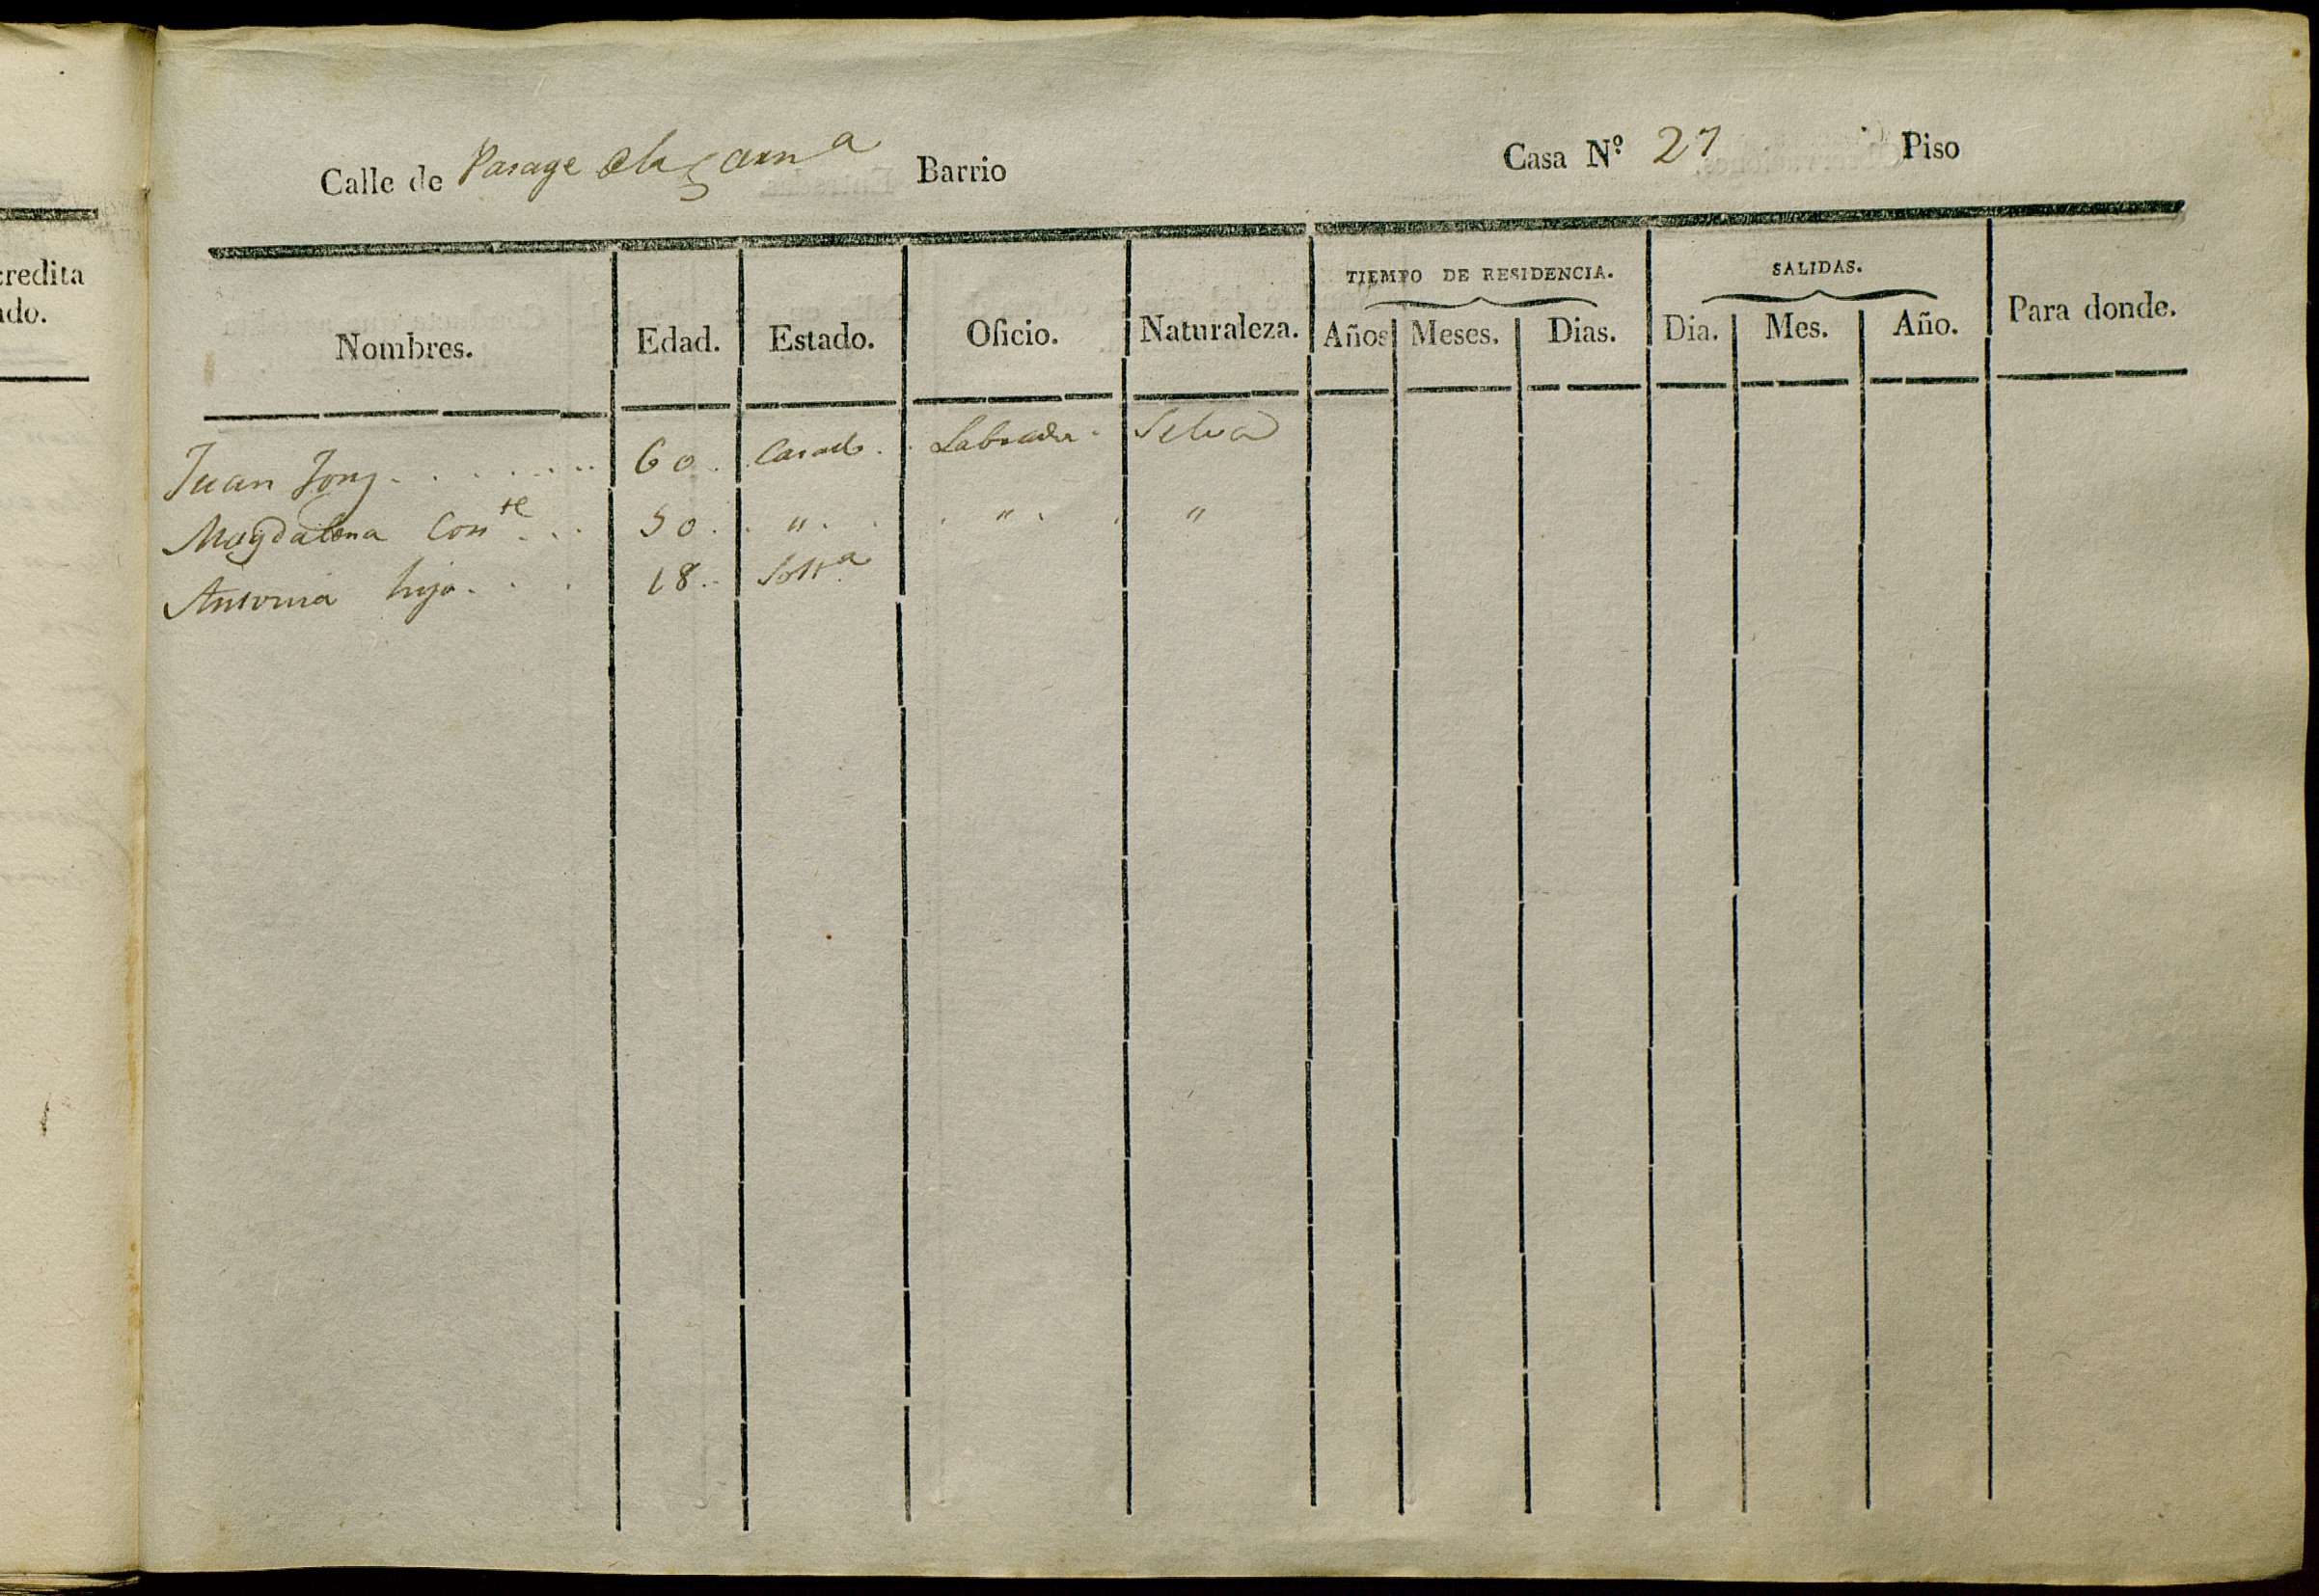 credita
ado.
Calle de Pasage Barrio Casa N.º 27 Piso
TIEMPO DE RESIDENCIA. SALIDAS.
Nombres. Edad. Estado. Oficio. Naturaleza. Años Meses. Dias. Dia. Mes. Año. Para donde.
Juan . . . . . . . 60 . . Casado . . Labrador . Selva
Magdalena Con.te . . . 50 . . " . . . " . . "
Antonia hija . . . 18 . . Solt.a